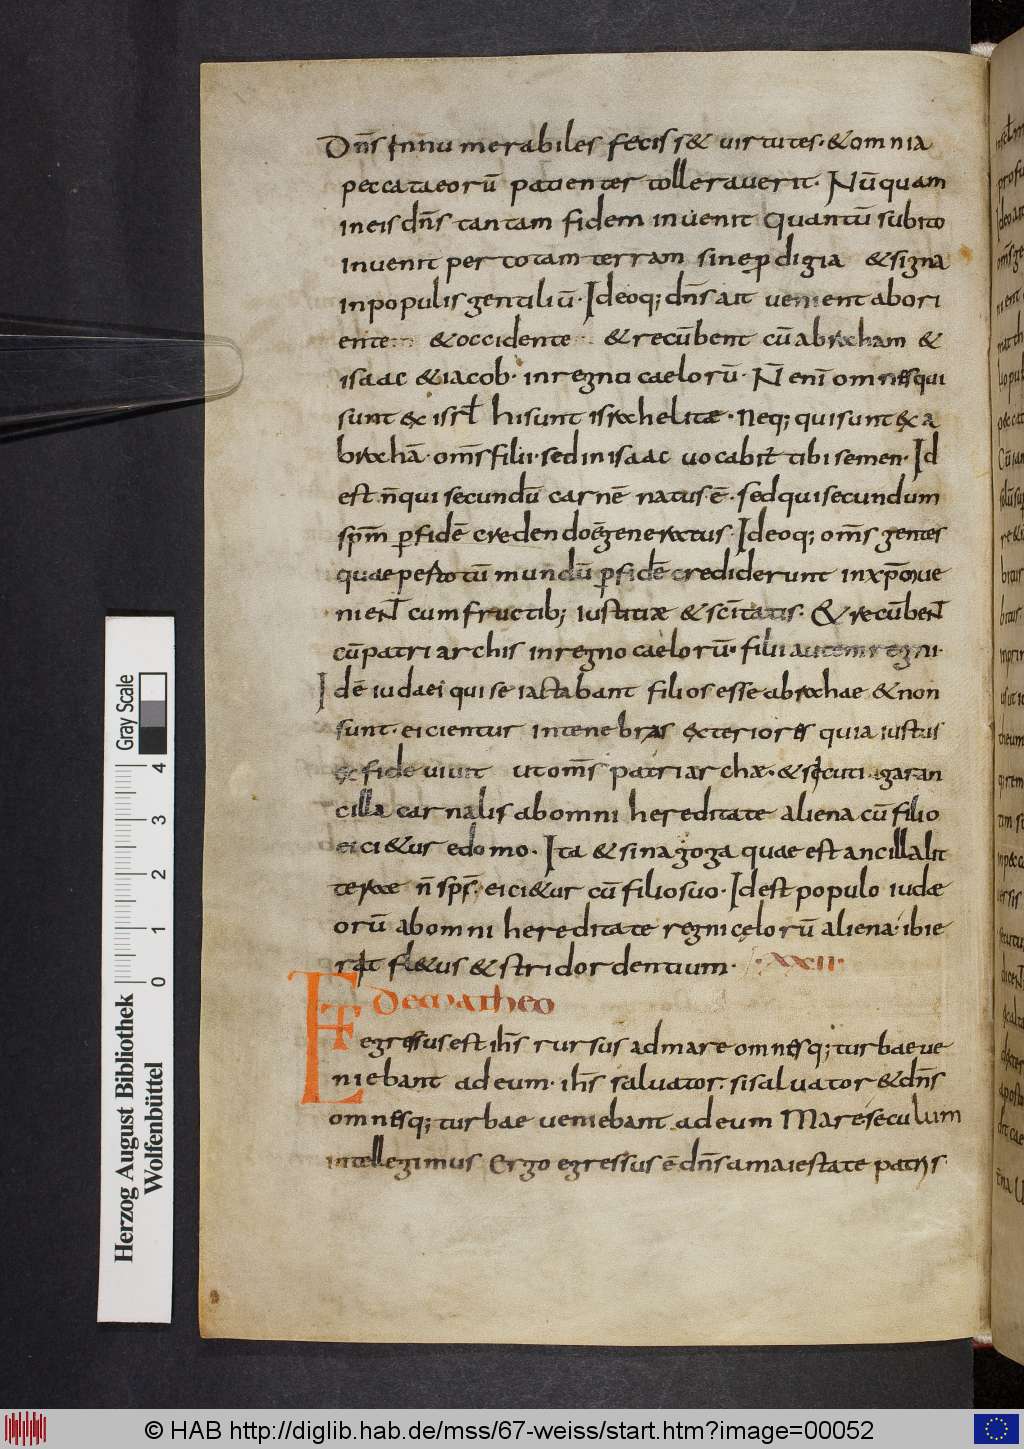 Dn̄s Innu merabiles feciss& uirtutes·&omnia
peccataeorū patienter tolleraue rit· Nūquam
ineisdn̄s tantam fidem inuenit quantū subito
inuenit per totam terram sinep̱digia &signa
inpopulis gentiliū· Ideoq; dn̄s ait uenient abori
ente &occidente &recūbent cū abraham &
isaac &iacob· inregno caelorū· N̄ enī omnesqui
sunt ex isrl̄ hisunt israhelitae· neq; quisunt exa
brahā· om̄s filii· sed inisaac uocabit̄ tibi semen· Id
est n̄qui secundū carnē natus ē· sedquisecundum
sp̄m p̱fidē credendo ē generatus· Ideoq; om̄s gentes
quae per totū mundū p̱fidē crediderunt inxp̄o ue
nieNT cumfructib; iustitiae &sc̄itatis· &recūbeNT
cūpatriarchis inregno caelorū· filii autem regni·
Idē iudaei quise iactabant filios esse abrahae &non
sunt· eicientur intenebras exteriores quia iustus
ex fide uiuit ut om̄s patriarchae· & secuti· agar an
cilla carnalis abomni hereditate aliena cū filio
eici&ur edomo· Ita & sinagoga quae est ancilla lit
terae n̄ sp̄s· eici&ur cū filiosuo· Idest populo iudae
orū abomni hereditate regni celorū aliena· ibi e
rat fl&us & stridor dentium· ·XXII·
de matheo
ET egressus est ih̄s rursus admare omnesq; turbae ue
niebant adeum· ih̄s saluator· sisaluator &dn̄s
omnesq; turbae ueniebant adeum Mare seculum
intellegimus Ergo egressus ē dn̄s amaiestate patris
Gray Scale
4 3 2 1 0
Herzog August Bibliothek
Wolfenbüttel
© HAB http://diglib.hab.de/mss/67-weiss/start.htm?image=00052